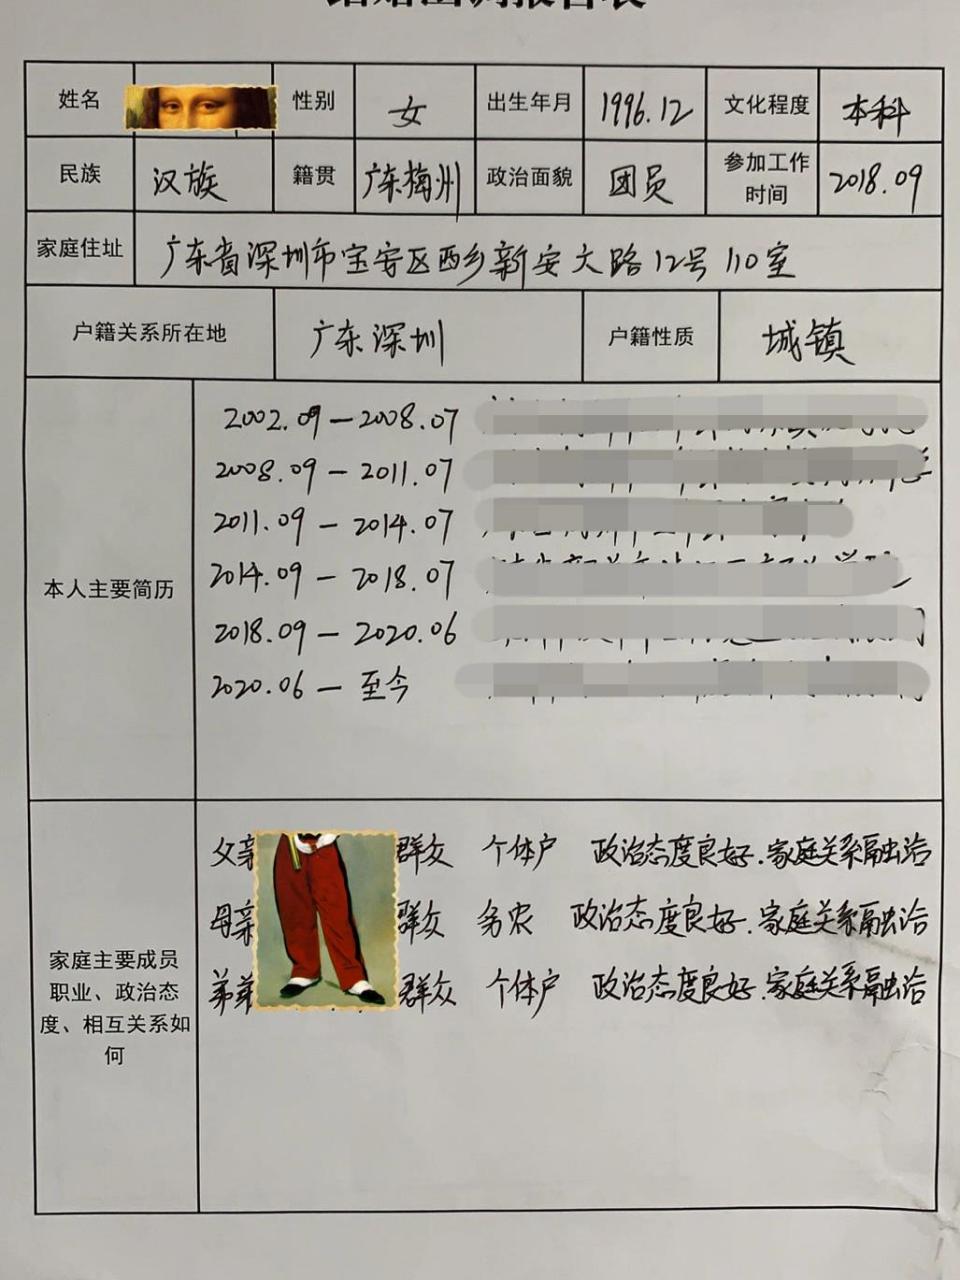 结婚函调报告表
姓名 性别 女 出生年月 1996.12 文化程度 本科
民族 汉族 籍贯 广东梅州 政治面貌 团员 参加工作时间 2018.09
家庭住址 广东省深圳市宝安区西乡新安大路12号110室
户籍关系所在地 广东深圳 户籍性质 城镇
本人主要简历
2002.09-2008.07
2008.09-2011.07
2011.09-2014.07
2014.09-2018.07
2018.09-2020.06
2020.06-至今
家庭主要成员
职业、政治态
度、相互关系如
何
父亲 群众 个体户 政治态度良好.家庭关系融洽
母亲 群众 务农 政治态度良好.家庭关系融洽
弟弟 群众 个体户 政治态度良好.家庭关系融洽